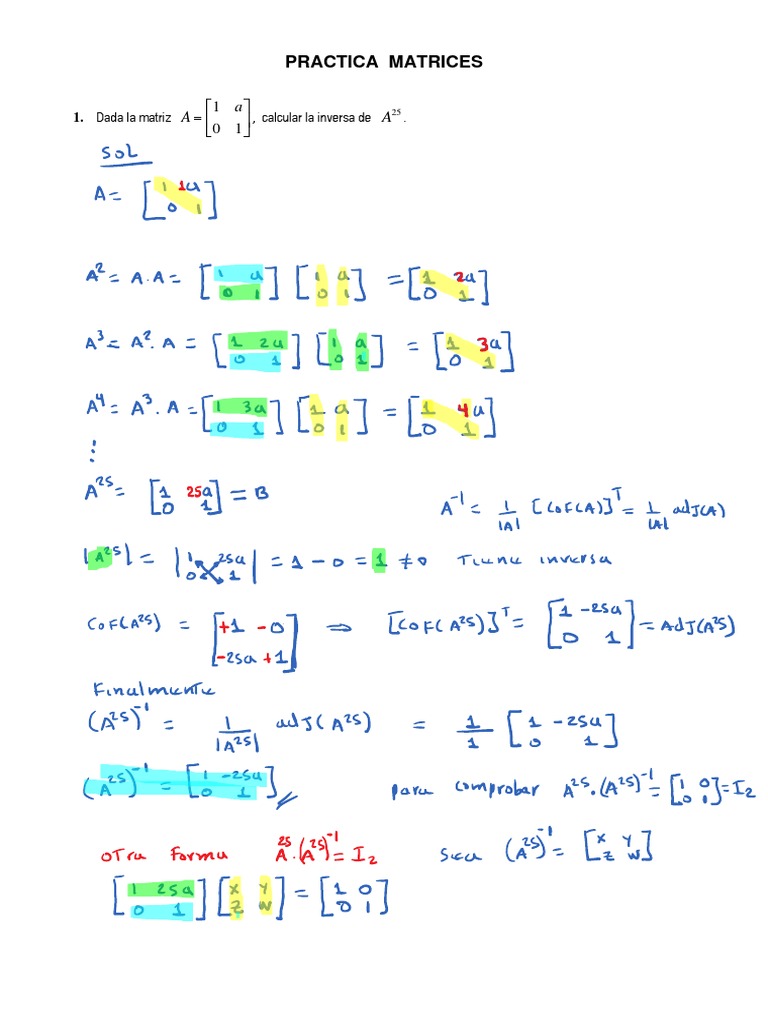 PRACTICA MATRICES
1. Dada la matriz A = [1 a; 0 1], calcular la inversa de A²⁵.
SOL
A = [1 1a; 0 1]
A² = A·A = [1 a; 0 1] [1 a; 0 1] = [1 2a; 0 1]
A³ = A²·A = [1 2a; 0 1] [1 a; 0 1] = [1 3a; 0 1]
A⁴ = A³·A = [1 3a; 0 1] [1 a; 0 1] = [1 4a; 0 1]
⋮
A²⁵ = [1 25a; 0 1] = B
A⁻¹ = 1/|A| [Cof(A)]ᵀ = 1/|A| adJ(A)
|A²⁵| = |1 25a; 0 1| = 1 - 0 = 1 ≠ 0 Tiene inversa
Cof(A²⁵) = [+1 -0; -25a +1] ⇒ [Cof(A²⁵)]ᵀ = [1 -25a; 0 1] = AdJ(A²⁵)
Finalmente
(A²⁵)⁻¹ = 1/|A²⁵| adJ(A²⁵) = 1/1 [1 -25a; 0 1]
(A²⁵)⁻¹ = [1 -25a; 0 1]
para comprobar A²⁵·(A²⁵)⁻¹ = [1 0; 0 1] = I₂
OTra Forma A²⁵·(A²⁵)⁻¹ = I₂ Sea (A²⁵)⁻¹ = [X Y; Z W]
[1 25a; 0 1] [X Y; Z W] = [1 0; 0 1]